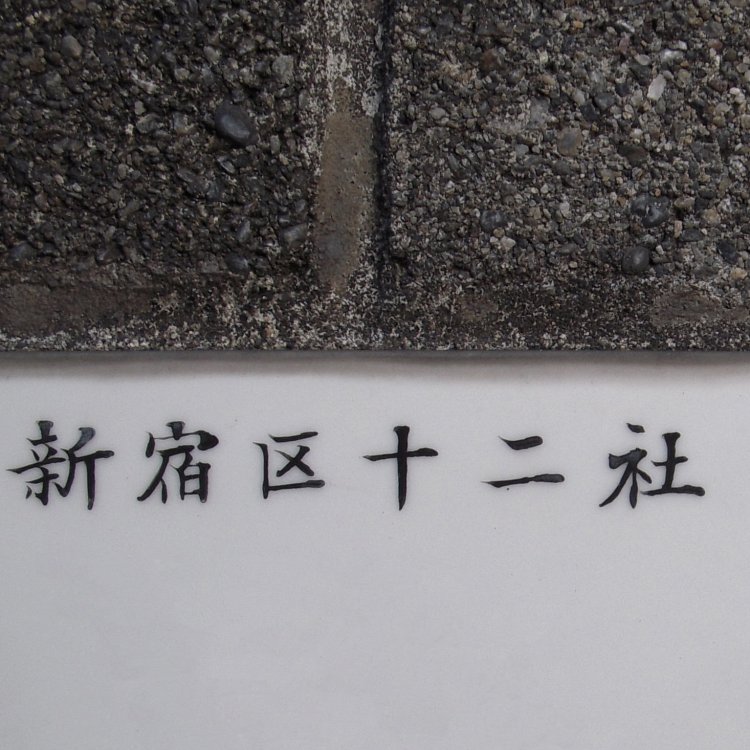 新宿区十二社